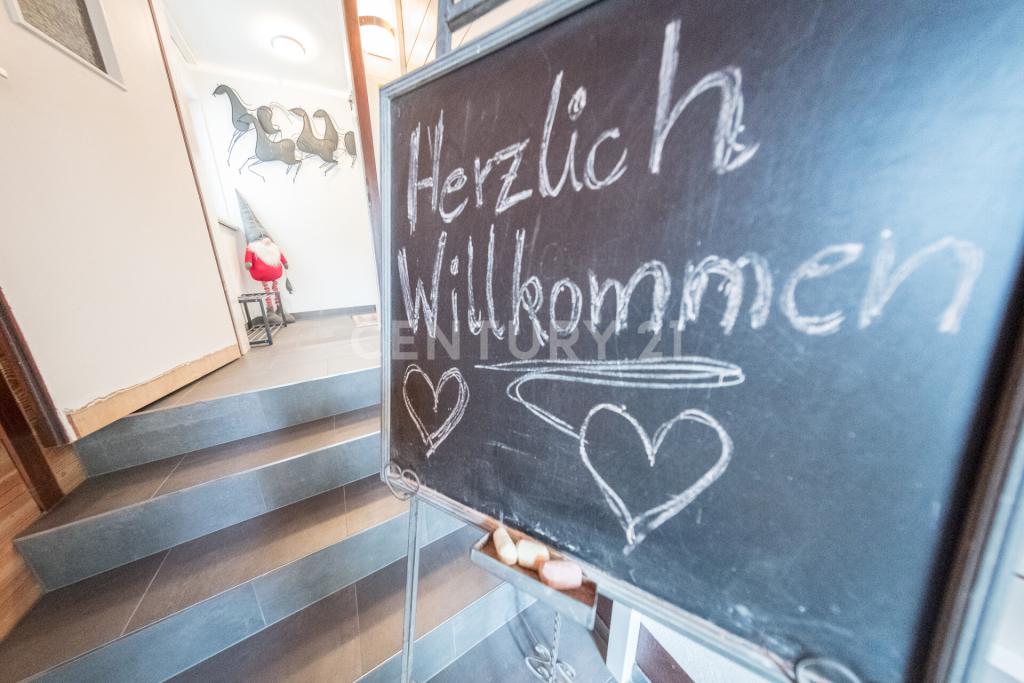 Herzlich
Willkommen
CENTURY 21